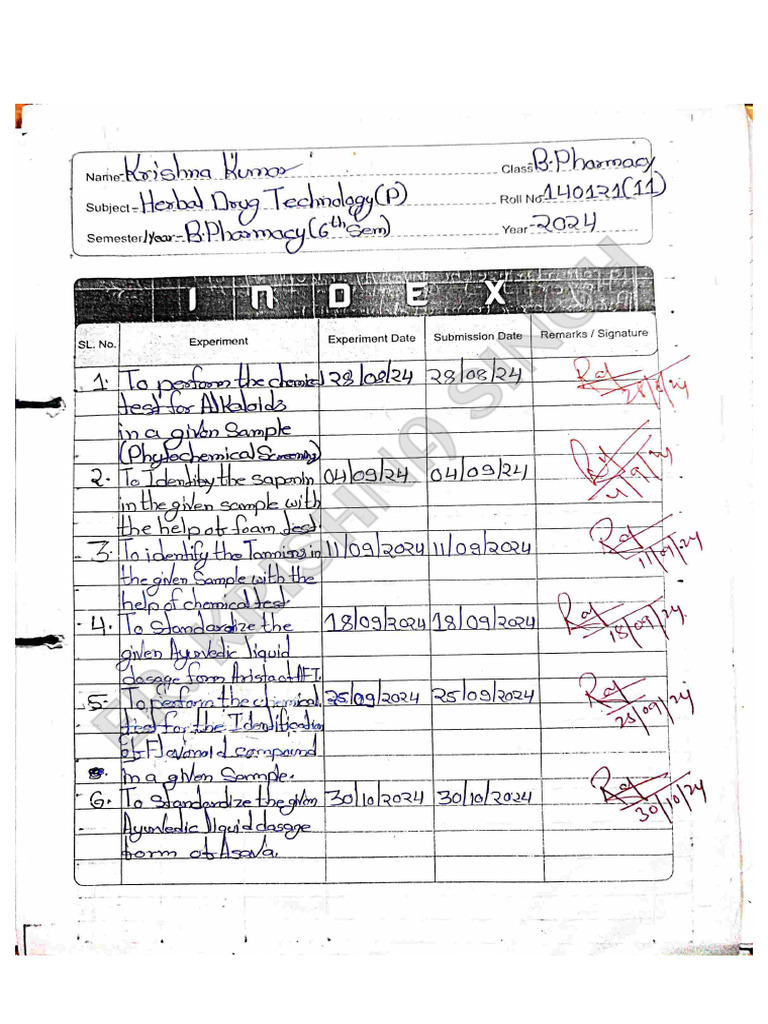 Name:- Krishna Kumar Class:- B.Pharmacy
Subject:- Herbal Drug Technology(P) Roll No. 140121(11)
Semester/Year:- B.Pharmacy(6th Sem) Year:- 2024
INDEX
SL. No. Experiment Experiment Date Submission Date Remarks / Signature
1. To perform the chemical 28/08/24 28/08/24 Raj
test for Alkaloids 28/8/24
in a given Sample
(Phytochemical Screening)
2. To Identity the saponin 04/09/24 04/09/24
in the given sample with 4/9/24
the help of foam test.
3. To identify the Tannins in 11/09/2024 11/09/2024 Raj
the given Sample with the 11/09/24
help of chemical test.
4. To Standardize the 18/09/2024 18/09/2024 Raj
given Ayurvedic liquid 18/09/24
dosage form Arista of AFI.
5. To perform the chemical 25/09/2024 25/09/2024 Raj
test for the Identification 25/09/24
of Flavonoid compound
in a given Sample.
6. To Standardize the given 30/10/2024 30/10/2024 Raj
Ayurvedic liquid dasage 30/10/24
form of Asava.
ER. KRISHNA SINGH